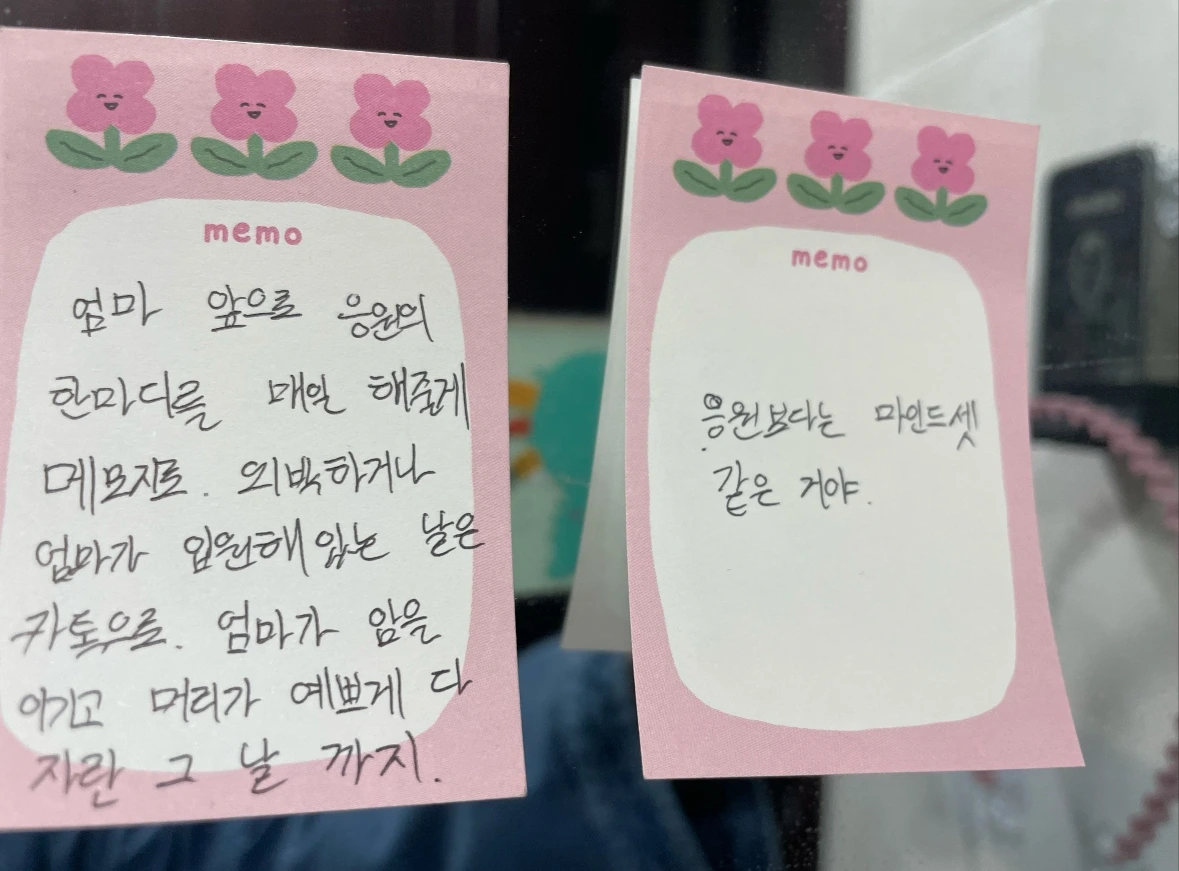 memo
엄마 앞으로 응원의
한마디를 매일 해줄게
메모지로. 외박하거나
엄마가 입원해 있는 날은
카톡으로. 엄마가 암을
이기고 머리가 예쁘게 다
자란 그 날 까지.
memo
응원보다는 마인드셋
같은 거야.